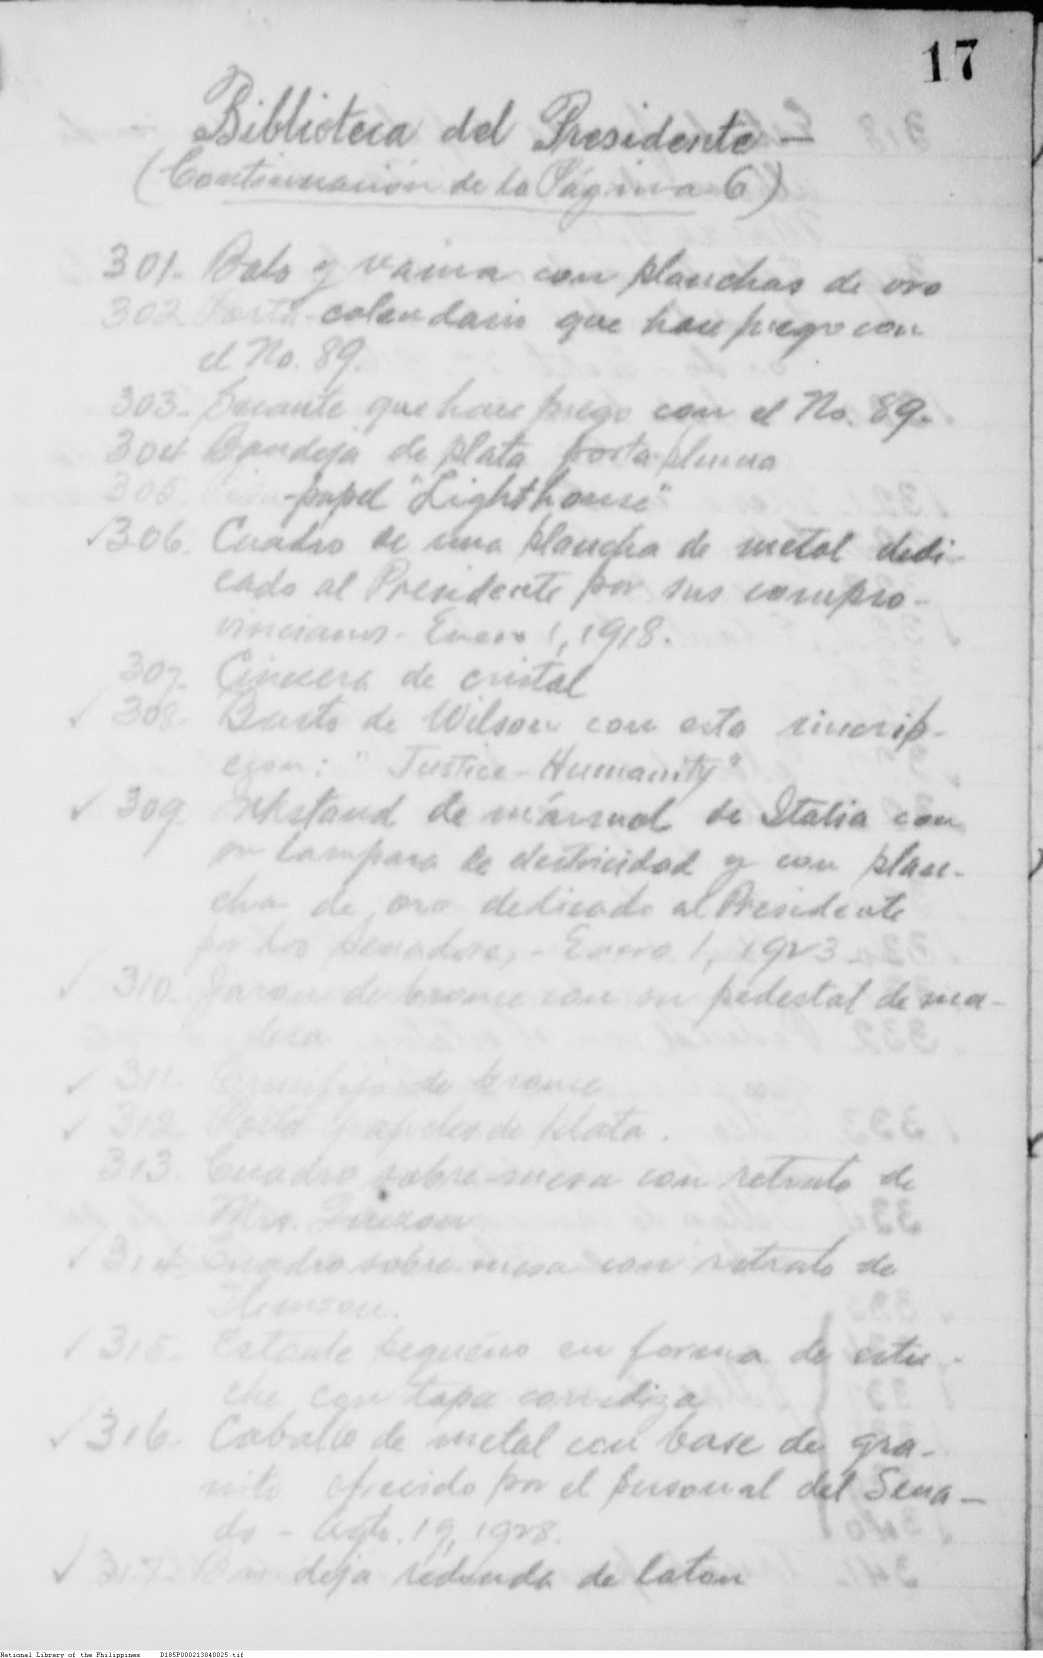 17
Biblioteca del Presidente -
(Continuación de la Página 6)
301. Bolo y vaina con planchas de oro
302 Porta-calendario que hace juego con
el No. 89.
303. Secante que hace juego con el No. 89.
304 Bandeja de plata porta-pluma
305. -papel "Lighthouse"
✓306. Cuadro de una plancha de metal dedi-
cado al Presidente por sus compro-
vincianos - Enero 1, 1918.
307. Cinicera de cristal
✓ 308. Busto de Wilson con esta rinscrip-
cion: "Justice - Humanity"
✓ 309. Inkstand de mármol de Italia con
su lampara de electricidad y con plan-
cha de oro dedicado al Presidente
por los Senadores, - Enero 1, 1923.
✓ 310. Jaron de bronce con su pedestal de ma-
dera
✓ 311. Crucifijo de bronce
✓ 312. Porta papeles de plata.
313. Cuadro sobre-mesa con retrato de
Mrs. Quezon
✓ 314. Cuadro sobre-mesa con retrato de

✓ 315. Estante pequeño en forma de estu-
che con tapa corrediza
✓ 316. Caballo de metal con base de gra-
nito ofrecido por el personal del Sena-
do - Agto. 19, 1928.
✓ 317. Bandeja redonda de laton
National Library of the Philippines D185P000213040025.tif